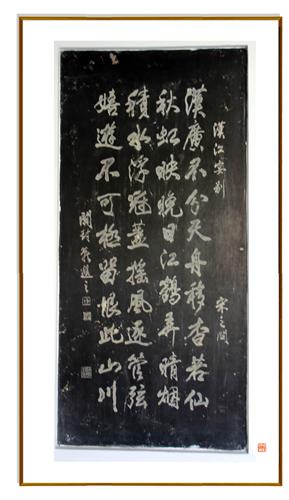 漢江宴別
宋之問
漢廣不分天舟移杳若仙
秋虹映晚日江鶴弄晴烟
積水浮冠蓋搖風逐管弦
嬉遊不可極留恨此山川